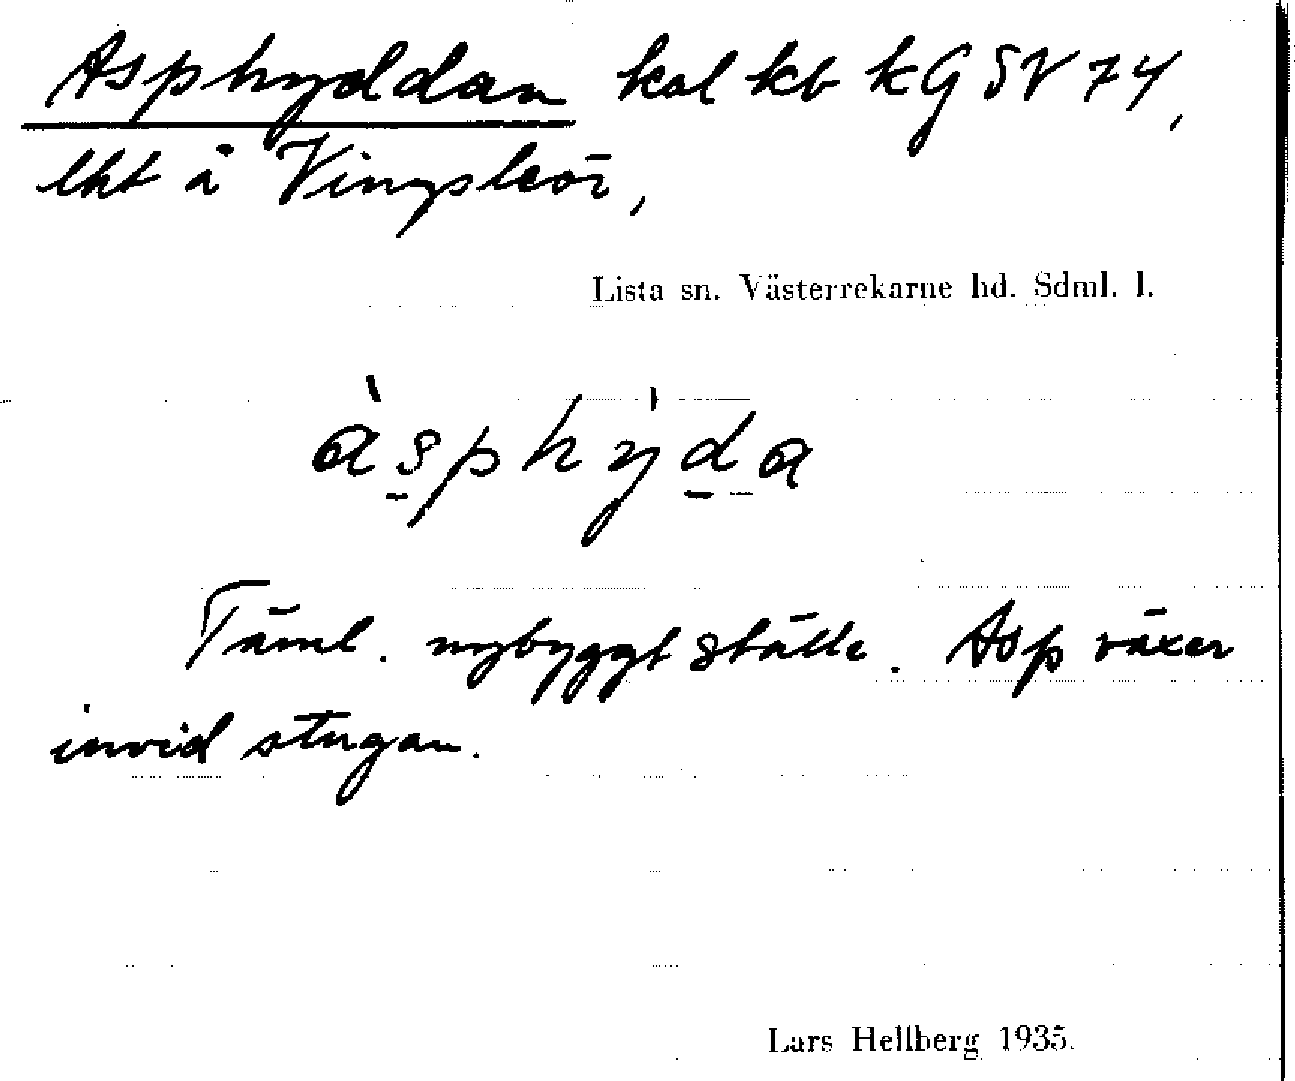 Asphyddan kal kb kG SV 74,
lht å Vingsleör,
Lista sn. Västerrekarne hd. Sdml. l.
àsphy̍da
Täml. nybyggt ställe. Asp växer
invid stugan.
Lars Hellberg 1935.